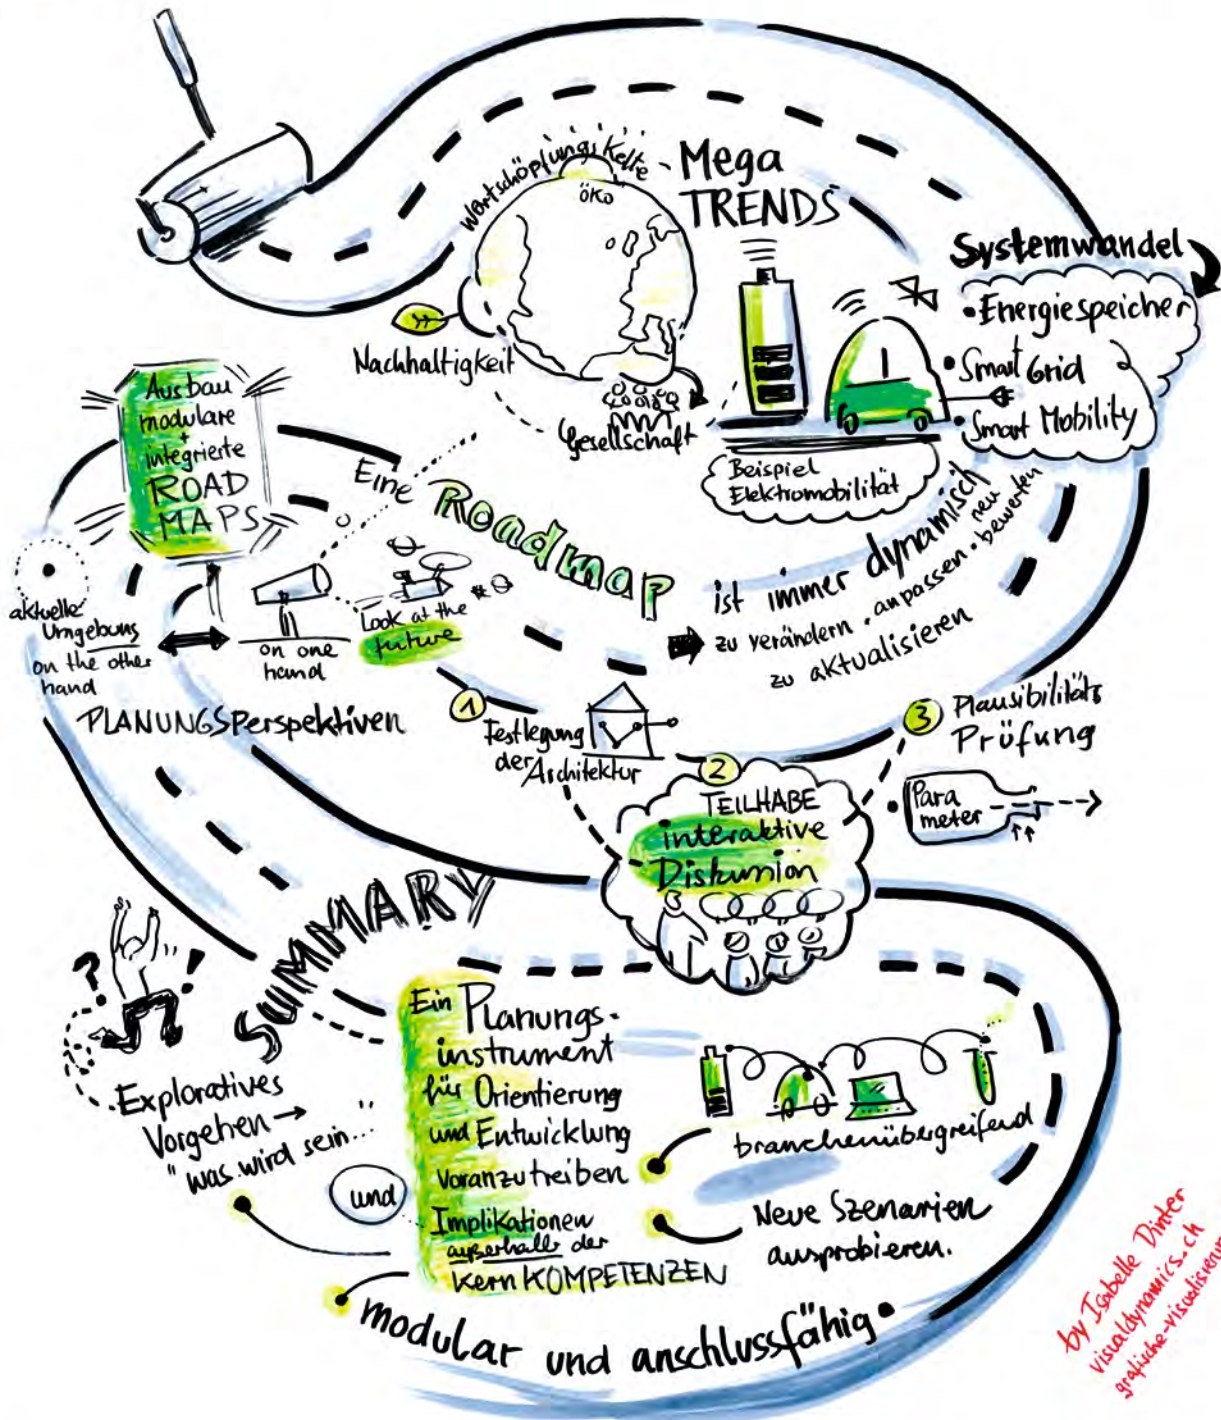 Wertschöpfungs Kette
Mega
TRENDS
ÖKO
Nachhaltigkeit
Gesellschaft
Systemwandel
• Energiespeicher
• Smart Grid
• Smart Mobility
Beispiel
Elektromobilität
Ausbau
modulare
+
integrierte
ROAD
MAPS
Eine Roadmap
ist immer dynamisch
zu verändern • anpassen • neu bewerten
zu aktualisieren
aktuelle
Umgebung
on the other
hand
on one
hand
Look at the
future
PLANUNGSperspektiven
1
Festlegung
der Architektur
2
TEILHABE
interaktive
Diskussion
3
Plausibilitäts
Prüfung
• Para
meter
SUMMARY
? !
Exploratives
Vorgehen →
"was wird sein..."
Ein Planungs-
instrument
für Orientierung
und Entwicklung
voranzutreiben
und
Implikationen
außerhalb der
Kern KOMPETENZEN
branchenübergreifend
Neue Szenarien
ausprobieren.
modular und anschlussfähig •
by Isabelle Dinter
visualdynamics.ch
grafische-visualisierung